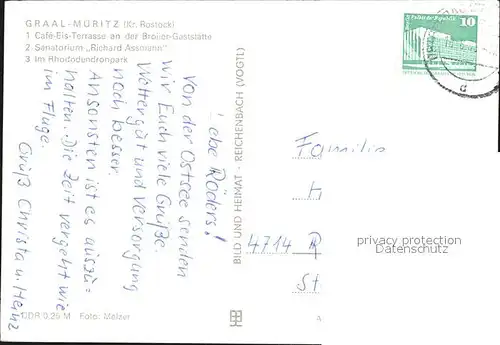 GRAAL-MÜRITZ (Kr. Rostock)
1 Café-Eis-Terrasse an der Broiler-Gaststätte
2 Sanatorium „Richard Assmann"
3 Im Rhododendronpark
Liebe Röders!
Von der Ostsee senden
wir Euch viele Grüße.
Wetter gut und Versorgung
noch besser.
Ansonsten ist es auszu=
halten. Die Zeit vergeht wie
im Fluge.
Gruß Christa u. Heinz
DDR 0,25 M Foto: Melzer
BILD UND HEIMAT · REICHENBACH (VOGTL)
10
Familie
4714 R
St
A
privacy protection
Datenschutz